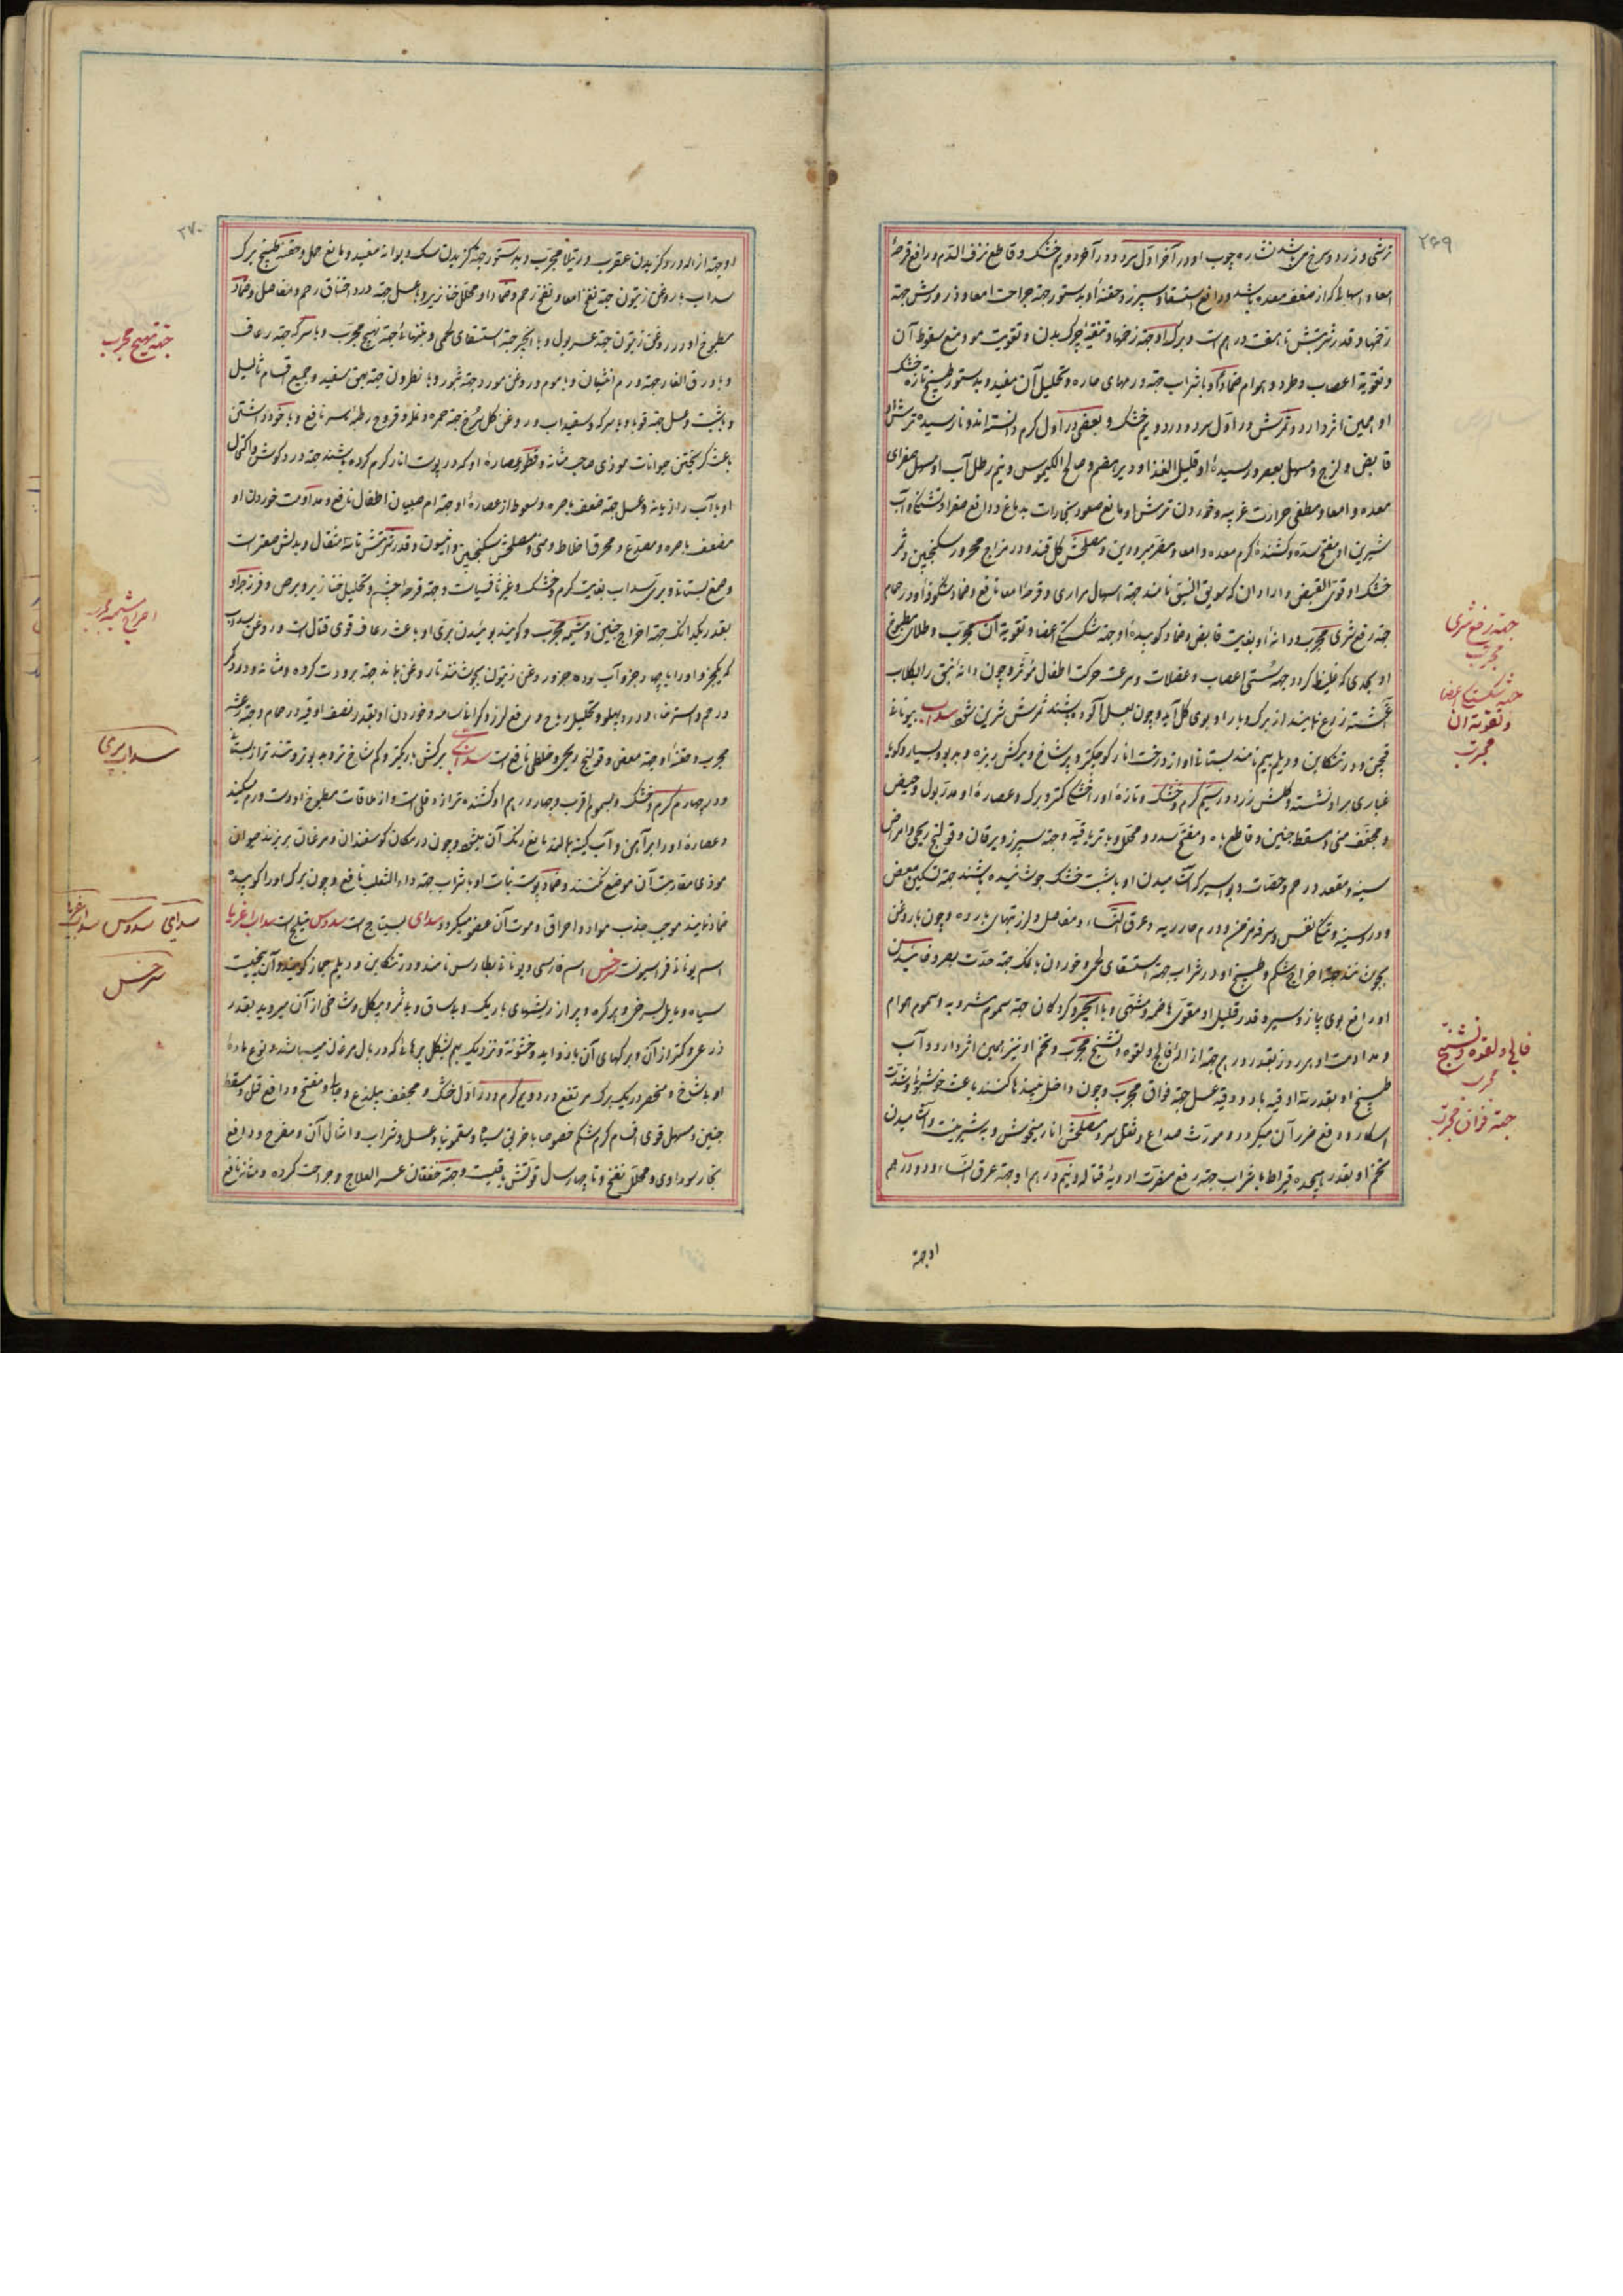 ۲۶۹
ترشی و زرد و سرخ می‌باشد نشاره چوب او در آخر اول سرد و در آخر دویم خشک و قاطع نزف الدم و رافع قرحهٔ
امعا و اسهالی که از ضعف معده باشد و رافع استسقا و سپرز و حقنهٔ او بدستور جهة جراحت امعا و ذرورش جهة
زخمها و قدر شربتش تا هفت درهم است و برک او جهة زخمها و تنقیهٔ چرک بدن و تقویت مو و منع سقوط آن
و تقویة اعصاب و طرد هوام ضماد او با شراب جهة ورمهای حاره و تحلیل آن مفید و بدستور طبیخ تازه خشک
او همین اثر دارد و ثمرش در اول سرد و در دویم خشک و بعضی در اول کرم دانسته‌اند و نارسیدهٔ ترش
قابض و لزج و مسهل بعصر و رسیدهٔ او قلیل الغذا و دیر هضم و صالح الکیموس و نیم رطل آب او مسهل صفرای
معده و امعا و مطفی حرارت غریبه و خوردن ترش او مانع صعود بخارات بدماغ و دافع صفرا و تشنگی و آب
شیرین او مفتح سده و کشندهٔ کرم معده و امعا و مضر مبرودین و مصلحش کل قند و در مزاج محرور سکنجبین و ثمر
خشک او قوی القبض و آرد آن که سویق النبق نامند جهة اسهال مراری و قرحهٔ امعا نافع و ضماد شکوفهٔ او در حمام
جهة رفع شری مجرب و دانهٔ او بغایت قابض و ضماد کوبیدهٔ او جهة شکستگی اعضا و تقویة آن مجرب و طلای مطبوخ
او بحدی که غلیظ کردد جهة سستی اعصاب و عضلات و سرعت حرکت اطفال مؤثر و چون دانهٔ نبق را بکلاب
آغشته زرع نمایند از برک و بار او بوی کل آید و چون بعسل آلوده بکارند ثمرش شیرین شود سداب بیونانی
فیجن و در تنکابن و دیلم پیم نامند بستانی او از درخت انار کوچکتر و پر شاخ و برکش ریزه و بدبو و بسیار و کویا
غباری بر او نشسته و کلش زرد و در سیم کرم و خشک و تازهٔ او را خشکی کمتر و برک و عصارهٔ او مدر بول و حیض
و مجفف منی و مسقط جنین و قاطع باه و مفتح سدد و محلل و با تریاقیه و جهة سپرز و یرقان و قولنج ریحی و امراض
سینه و مقعد و رحم و حقنات و بواسیر که آشامیدن او با شبت خشک جوشانیده باشند جهة تسکین مغص
و درد سینه و تنکی نفس و سرفهٔ مزمن و ورم حار ریه و عرق النساء و مفاصل و لرز تبهای بارده و چون با روغن
بجوشانند جهة اخراج کرم شکم و طبیخ او در شراب جهة استسقای لحمی و خوردن با نمک جهة حدت بصر و خائیدن
او رافع بوی پیاز و سیر و قدر قلیل او مقوی هاضمه و مشتهی و با انجیر و کردکان جهة سموم مشروبه و سموم هوام
و مداومت او هر روز بقدر درهم جهة ازالهٔ فالج و لقوه و تشنج مجرب و تخم او نیز همین اثر دارد و آب
طبیخ او بقدر سه اوقیه با دو وقیه عسل جهة فواق مجرب و چون داخل نبیذها کنند باعث خوشبوئی و شدت
اسکار و دفع ضرر آن میکردد و مورث صداع و ثقل سر و مصلحش انار میخوش و بدشیرینست و آشامیدن
تخم او بقدر هیجده قیراط با شراب جهة رفع مضرت ادویهٔ قتاله و نیم درهم او جهة عرق النساء و دو درهم
او جهة
جهة رفع شری
مجرب
جهة شکستگی اعضا
و تقویة آن
مجرب
فالج و لقوه و تشنج
مجرب
جهة فواق مجرب
۲۷۰
او جهة ازاله درد کزیدن عقرب و رتیلا مجرب و بدستور جهة کزیدن سک دیوانه مفید و مانع حمل و حقنهٔ طبیخ برک
سداب با روغن زیتون جهة نفخ امعا و نفخ رحم و ضماد او محلل خنازیر و با عسل جهة درد اختناق رحم و مفاصل و ضماد
مطبوخ او در روغن زیتون جهة عسر بول و با انجیر جهة استسقای لحمی و بتنهائی جهة تهیج مجرب و با سرکه جهة رعاف
و با ورق الغار جهة ورم انثیان و با موم و روغن مورد جهة بثور و با نطرون جهة بهق سفید و جمیع اقسام ثالیل
و با شبت و عسل جهة قوبا و با سرکه و سفیداب و روغن کل سرخ جهة حمره و نمله و قروح رطبهٔ سر نافع و با خود داشتن
باعث کریختن حیوانات موذی صاحب شانه و قطور عصارهٔ او که در پوست انار کرم کرده باشند جهة درد کوش و اکتحال
او با آب رازیانه و عسل جهة ضعف باصره و سعوط از عصارهٔ او جهة ام صبیان اطفال نافع و مداومت خوردن او
مضعف باصره و مصدع و محرق اخلاط و منی و مصلحش سکنجبین و انیسون و قدر شربتش تا سه مثقال و بدلش صعتر است
و صمغ بستانی و بری سداب بغایت کرم و خشک و غیر ثافسیاست و جهة قرحهٔ چشم و تحلیل خنازیر و برص و فرزجهٔ او
بقدر یکدانک جهة اخراج جنین و مشیمه مجرب و کویند بوئیدن بری او باعث رعاف قوی قتال است و روغن سداب
که یکجزو او را با چهار جزو آب و ده جزو روغن زیتون بجوشانند تا روغن بماند جهة برودت کرده و مثانه و درد کمر
و رحم و استرخاء و درد پهلو و تحلیل ریاح و رفع لرز و کرانی سامعه و خوردن او بقدر نصف اوقیه در حمام و جهة رعشه
مجرب و حقنهٔ او جهة مغص و قولنج ریحی و خلطی نافع است سداب بری برکش باریکتر و کم شاخ‌تر و بدبوتر و تندتر از بستانی
و در چهارم کرم و خشک و بسموم اقرب و چهار درهم او کشنده‌تر از دفلی است و از ملاقات مطبوخ او دست ورم میکند
و عصارهٔ او را بر آهن و آبکینه بمالند مانع زنک آن میشود و چون در مکان کوسفندان و مرغان بریزند حیوان
موذی مقاربت آن موضع نکنند و ضماد پوست نبات او با شراب جهة داء الثعلب نافع و چون برک او را کوبیده
ضماد نمایند موجب جذب مواد و احراق و موت آن عضو میکردد سدای بسیتاج است سدوس نیلج است سداب اغریا
اسم یونانی فراسیونست سرخس اسم فارسی و یونانی بطارس نامند و در تنکابن و دیلم جماز کویند و آن بیخیست
سیاه و مایل بسرخی و پر کره و پر از ریشهای باریک و بی ساق و بی ثمر و بی کل و شاخی از آن میروید بقدر
ذرعی و کمتر از آن و برکهای آن با زواید و خشونة و نزدیک بهم بشکل پرهائی که در بال مرغان میباشد و نوع مادهٔ
او با شاخ و منحصر در یک برک مرتفع و در دویم کرم و در اول خشک و مجفف بی لذع و جالی و مفتح و رافع قمل و مسقط
جنین و مسهل قوی اقسام کرم شکم خصوصا با خربق سیاه و سقمونیا و عسل و شراب و امثال آن و مفرح و دافع
بخار سوداوی و محلل نفخ و تا چهار سال قوتش باقیست و جهة خفقان عسر العلاج و جراحت کرده و مثانه نافع
جهة تهیج مجرب
اخراج مشیمه مجرب
سداب بری
سدای سدوس سداب اغریا
سرخس